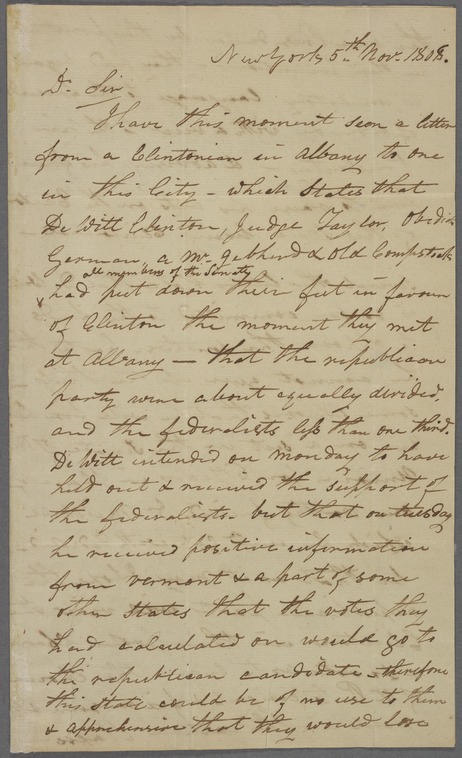 New York 5th Nov. 1808.
Dr. Sir
I have this moment seen a letter
from a Clintonian in Albany to one
in this City - which States that
De Witt Clinton, Judge Taylor, Obediah
German, a Mr. Gebhard & Old Comstock
all members of the Senate
had put down their feet in favour
of Clinton the moment they met
at Albany — that the republican
party were about equally divided,
and the federalists less than one third.
De Witt intended on monday to have
held out & received the support of
the federalists - but that on tuesday
he received positive information
from vermont & a part of some
other States that the votes they
had calculated on would go to
the republican candidate - therefore
this State could be of no use to them
& apprehensive that they would lose